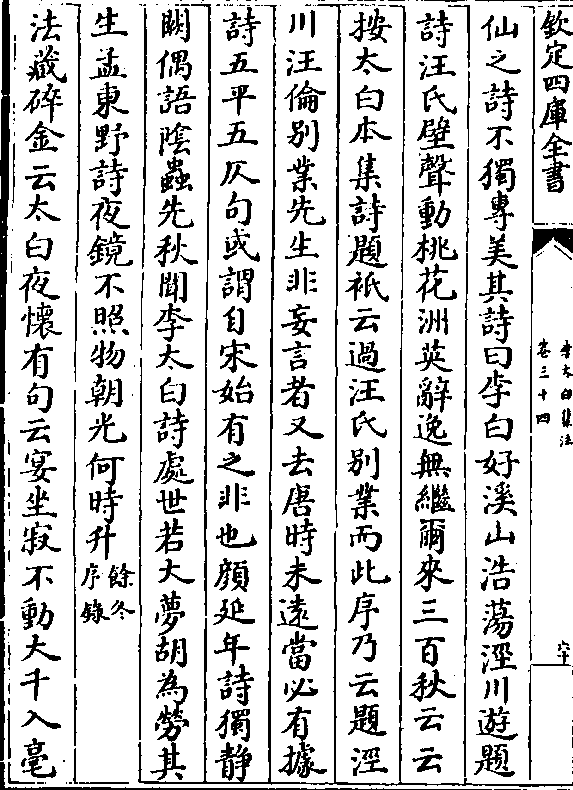 欽定四庫全書
李太白集注
卷三十四
六十
仙之詩不獨專美其詩曰李白好溪山浩蕩涇川遊題
詩汪氏壁聲動桃花洲英辭逸無繼爾來三百秋云云
按太白本集詩題祇云過汪氏別業而此序乃云題涇
川汪倫別業先生非妄言者又去唐時未遠當必有據
詩五平五仄句或謂自宋始有之非也顔延年詩獨静
闕偶語陰蟲先秋聞李太白詩處世若大夢胡為勞其
生孟東野詩夜鏡不照物朝光何時升餘冬序錄
法藏碎金云太白夜懷有句云宴坐寂不動大千入毫